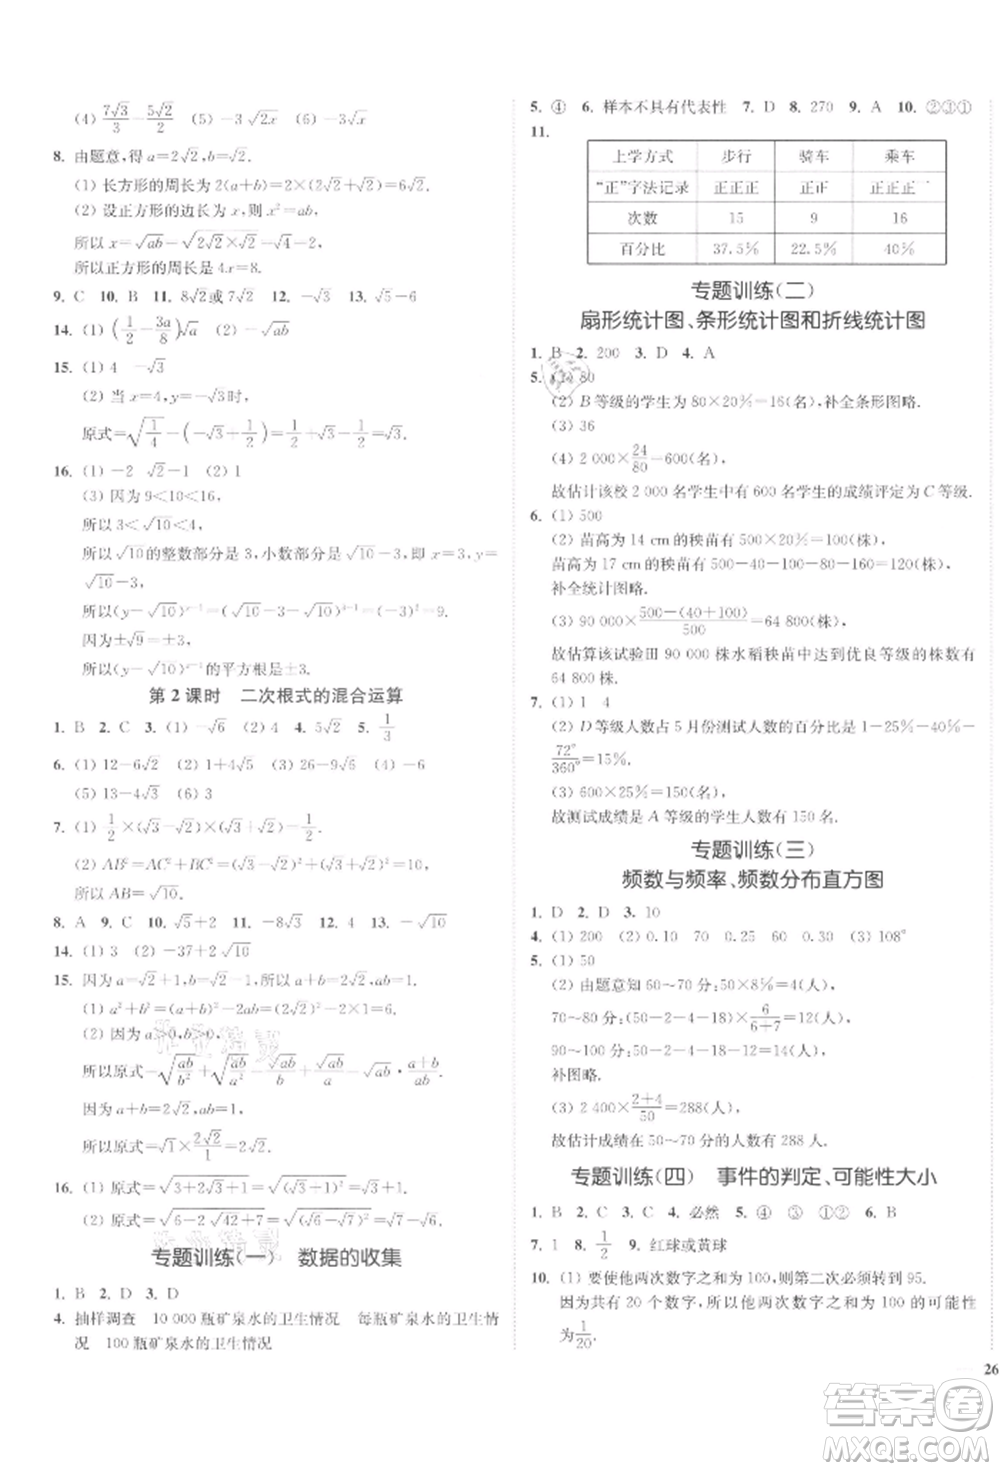 (4) 7√3/3 - 5√2/2 (5) -3 √2x (6) -3
8. 由题意,得 a=2√2,b=√2.
(1) 长方形的周长为 2(a+b)=2×(2√2+√2)=6√2.
(2) 设正方形的边长为 x,则 x²=ab,
所以 x=√ab=√2√2×√2=√4=2,
所以正方形的周长为 4x=8.
9. C 10. B 11. 8√2或7√2 12. -√3 13. √5-6
14. (1) (1/2 - 3a/8)√a (2) -√ab
15. (1) 4 -√3
(2) 当 x=4,y=-√3时,
16. (1) -2 √2-1 (2) 1
(3) 因为 9<10<16,
所以 3<√10<4,
所以 √10的整数部分是 3,小数部分是√10-3,即 x=3,y=
√10-3,
因为±√9=±3,
第 2 课时 二次根式的混合运算
1. B 2. C 3. (1) -√6 (2) -4 4. 5√2 5. 1/3
6. (1) 12-6√2 (2) 1+2√2 (3) 26-9√6 (4) -6
(5) 13-4√3 (6) 2
7. (1) 1/2×(√3-√2)×(√3+√2)=1/2.
(2) AB²=AC²+BC²=(√3-√2)²+(√3+√2)²=10,
所以 AB=√10.
8. A 9. C 10. √5+2 11. -8√3 12. 4 13. -√10
14. (1) 3 (2) -37+2√10
15. 因为 a=√2+1,b=√2-1,所以 a+b=2√2,ab=1.
(1) a²+b²=(a+b)²-2ab=(2√2)²-2×1=6.
(2) 因为 a>0,b>0,
因为 a+b=2√2,ab=1,
所以原式=√1×2√2/1=2√2.
16. (1) 原式=√3+2√2×1+1=√(√2+1)²=√2+1.
专题训练(一) 数据的收集
1. B 2. D 3. D
4. 抽样调查 10 000瓶矿泉水的卫生情况 每瓶矿泉水的卫生情
况 100 瓶矿泉水的卫生情况
5. ④ 6. 样本不具有代表性 7. D 8. 270 9. A 10. ②③①
11.
上学方式 步行 骑车 乘车
“正”字法记录 正正正 正正 正正正
次数 15 9 16
百分比 37.5% 22.5% 40%
专题训练(二)
扇形统计图、条形统计图和折线统计图
1. B 2. 200 3. D 4. A
5. (1) 80
(2) B 等级的学生为 80×20%=16(名),补全条形图略.
(3) 36
(4) 2 000×24/80=600(名),
故估计该校 2 000 名学生中有 600 名学生的成绩评定为 C 等级.
6. (1) 500
(2) 苗高为 14 cm 的秧苗有 500×20%=100(株),
苗高为 17 cm 的秧苗有 500-40-100-80-160=120(株),
补全统计图略.
(3) 90 000×500-(40+100)/500=64 800(株),
故估算该试验田 90 000 株水稻秧苗中达到优良等级的株数有
64 800 株.
7. (1) 1 4
(2) D 等级人数占 5 月份测试人数的百分比是 1-25%-40%-
72°/360°=15%.
(3) 600×25%=150(名),
故测试成绩是 A 等级的学生人数有 150 名.
专题训练(三)
频数与频率、频数分布直方图
1. D 2. D 3. 10
4. (1) 200 (2) 0.10 70 0.25 60 0.30 (3) 108°
5. (1) 50
(2) 由题意可知 50~60 分:50×8%=4(人),
70~80 分:(50-4-2-4-18)×6/6+7=12(人),
90~100 分:50-4-2-4-18-12=10(人),
补图略.
(3) 2 400×2+4/50=288(人),
故估计成绩在 50~70 分的人数有 288 人.
专题训练(四) 事件的判定、可能性大小
1. B 2. C 3. C 4. 必然 5. ④ ③ ④ 6. B
7. 1 8. 1/2 9. 红球或黄球
10. (1) 要使他两次数字之和为 100,则第二次必须转到 95.
因为共有 20 个数字,所以他两次数字之和为 100 的可能性
为1/20.
26
答案卷
MXQE.COM